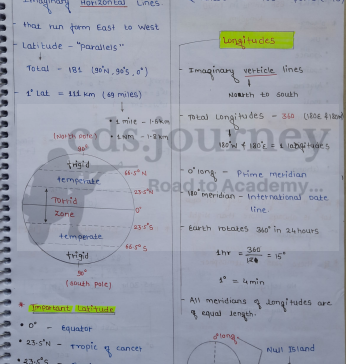 Imaginary Horizontal Lines
- that run form East to West
- Latitude - "Parallels"
Total - 181 (90°N, 90°S, 0°)
- 1° Lat = 111 km (69 miles)
• 1 mile - 1.6km
• 1 NM - 1.8km
(North pole)
90°
frigid
66.5°N
temperate
23.5°N
Torrid
0°
Zone
23.5°S
temperate
66.5°S
frigid
90°
(south pole)
* Important Latitude
• 0° - Equator
• 23.5°N - Tropic of cancer
• 23.5°S -
Longitudes
- Imaginary verticle lines
North to south
- Total Longitudes - 360
180°W & 180°E = 1 longitudes
- 0° long - Prime meridian
- 180° meridian - International Date
line.
- Earth rotates 360° in 24hours
1hr = 360 = 15°
1° = 4min
- All meridians of longitudes are
of equal length.
0° long.
Null Island
ds.journey
Road to Academy...